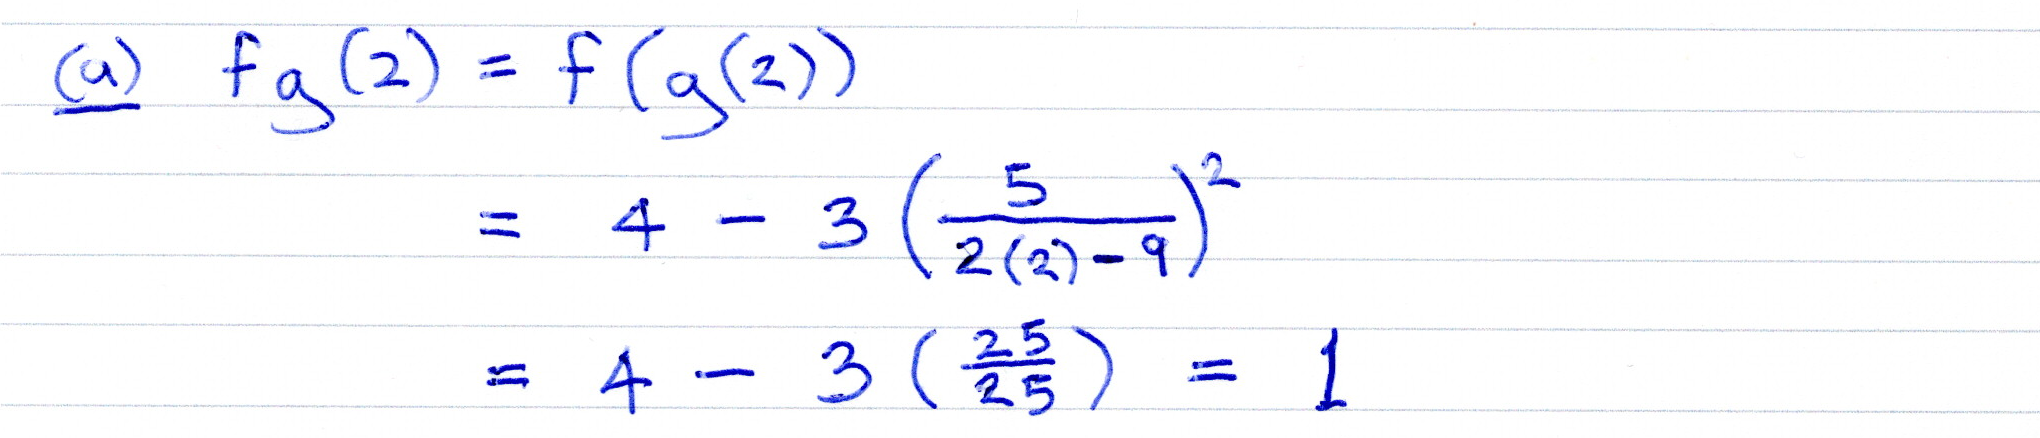 (a) fg(2) = f(g(2))
= 4 - 3 (5/(2(2)-9))²
= 4 - 3 (25/25) = 1